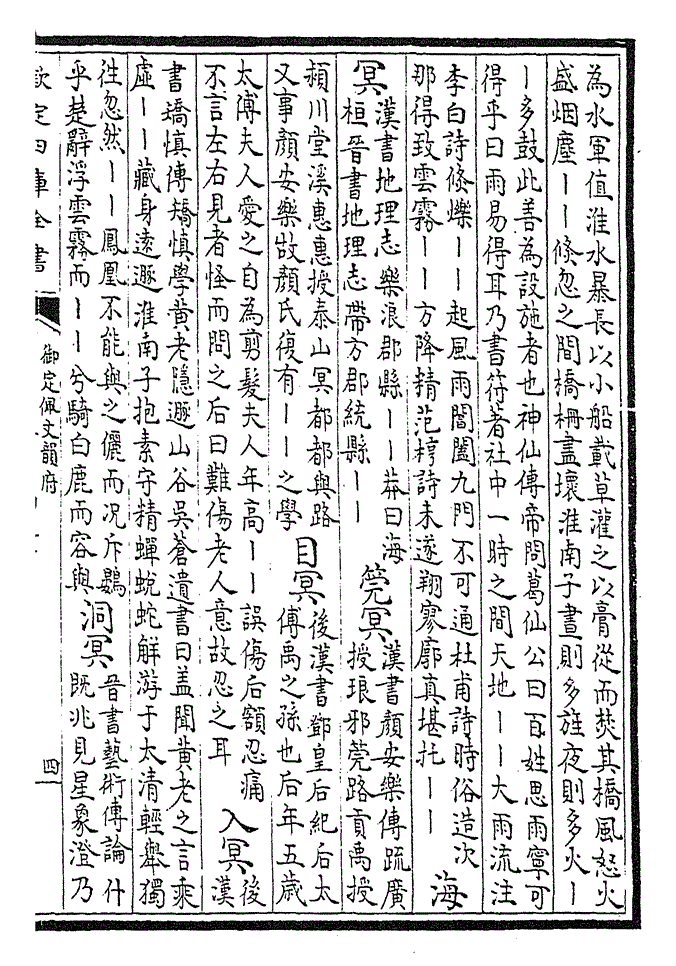 為水軍值淮水暴長以小船載草灌之以膏從而焚其橋風怒火
盛烟塵｜｜倏忽之間橋柵盡壞淮南子晝則多旌夜則多火｜
｜多鼓此善為設施者也神仙傳帝問葛仙公曰百姓思雨寧可
得乎曰雨易得耳乃書符著社中一時之間天地｜｜大雨流注
李白詩倏爍｜｜起風雨閶闔九門不可通杜甫詩時俗造次
那得致雲霧｜｜方降精范梈詩未遂翔寥廓真堪托｜｜
海
冥
漢書地理志樂浪郡縣｜｜莽曰海
桓晉書地理志帶方郡統縣｜｜
筦冥
漢書顔安樂傳疏廣
授琅邪筦路貢禹授
潁川堂溪惠惠授泰山冥都都與路
又事顔安樂故顔氏復有｜｜之學
目冥
後漢書鄧皇后紀后太
傅禹之孫也后年五歳
太傅夫人愛之自為剪髮夫人年高｜｜誤傷后額忍痛
不言左右見者怪而問之后曰難傷老人意故忍之耳
入冥
後
漢
書矯慎傳矯慎學黄老隱遯山谷吳蒼遺書曰盖聞黄老之言乘
虛｜｜藏身逺遯淮南子抱素守精蟬蛻蛇解游于太清輕舉獨
徃忽然｜｜鳳凰不能與之儷而况斥鷃
乎楚辭浮雲霧而｜｜兮騎白鹿而容與
洞冥
晉書藝術傳論什
既兆見星象澄乃
欽定四庫全書
御定佩文韻府
四